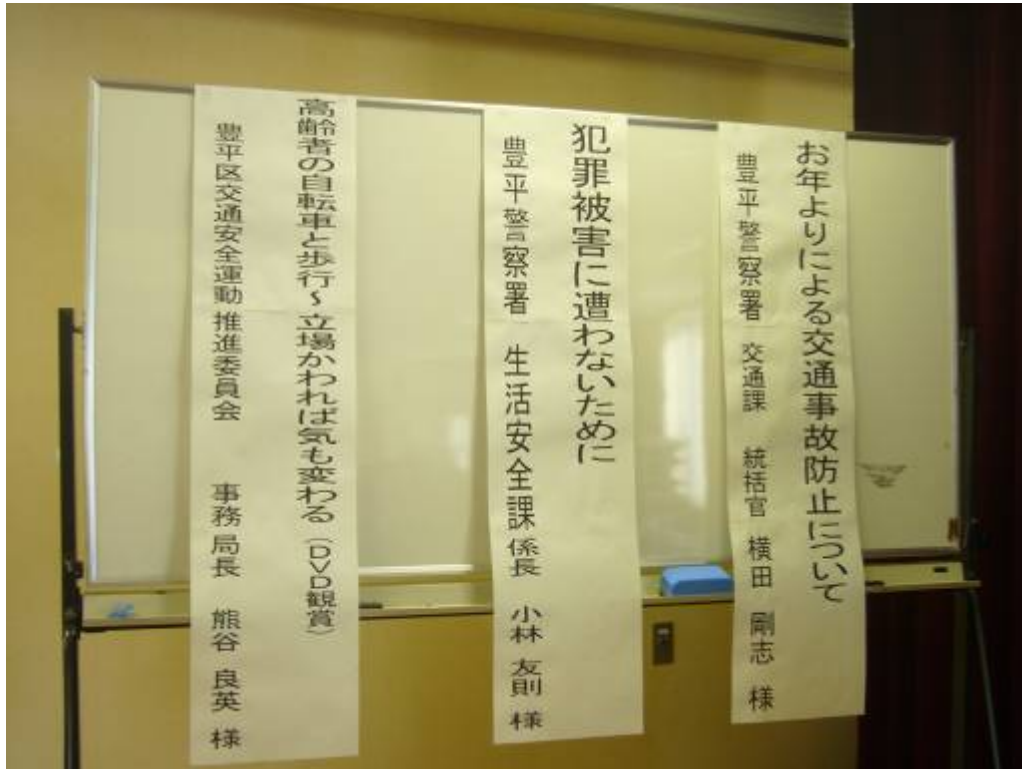 お年よりによる交通事故防止について
豊平警察署 交通課 統括官 横田 剛志 様
犯罪被害に遭わないために
豊平警察署 生活安全課係長 小林 友則 様
高齢者の自転車と歩行~立場かわれば気も変わる(DVD観賞)
豊平区交通安全運動推進委員会 事務局長 熊谷 良英 様